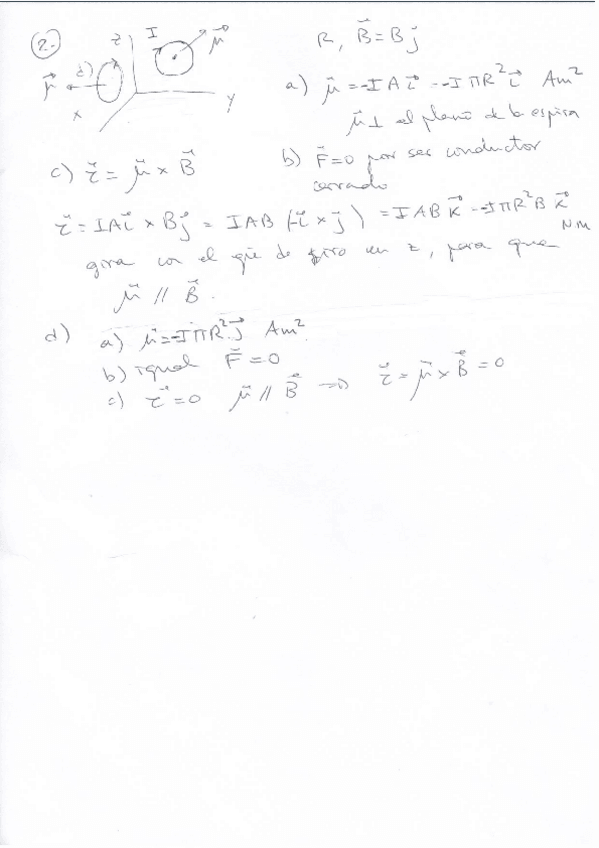 2.-
z I μ⃗
R, B⃗ = B j⃗
μ⃗ d)
x y
a) μ⃗ = -I A i⃗ = -I π R² i⃗ Am²
μ⃗ ⊥ al plano de la espira
b) F⃗ = 0 por ser conductor
cerrado
c) τ⃗ = μ⃗ × B⃗
τ⃗ = I A i⃗ × B j⃗ = I A B (-i⃗ × j⃗) = -I A B k⃗ = -I π R² B k⃗
N.m
gira con el eje de giro en z, para que
μ⃗ // B⃗.
d) a) μ⃗ = -I π R² j⃗ Am²
b) igual F⃗ = 0
c) τ⃗ = 0 μ⃗ // B⃗ → τ⃗ = μ⃗ × B⃗ = 0